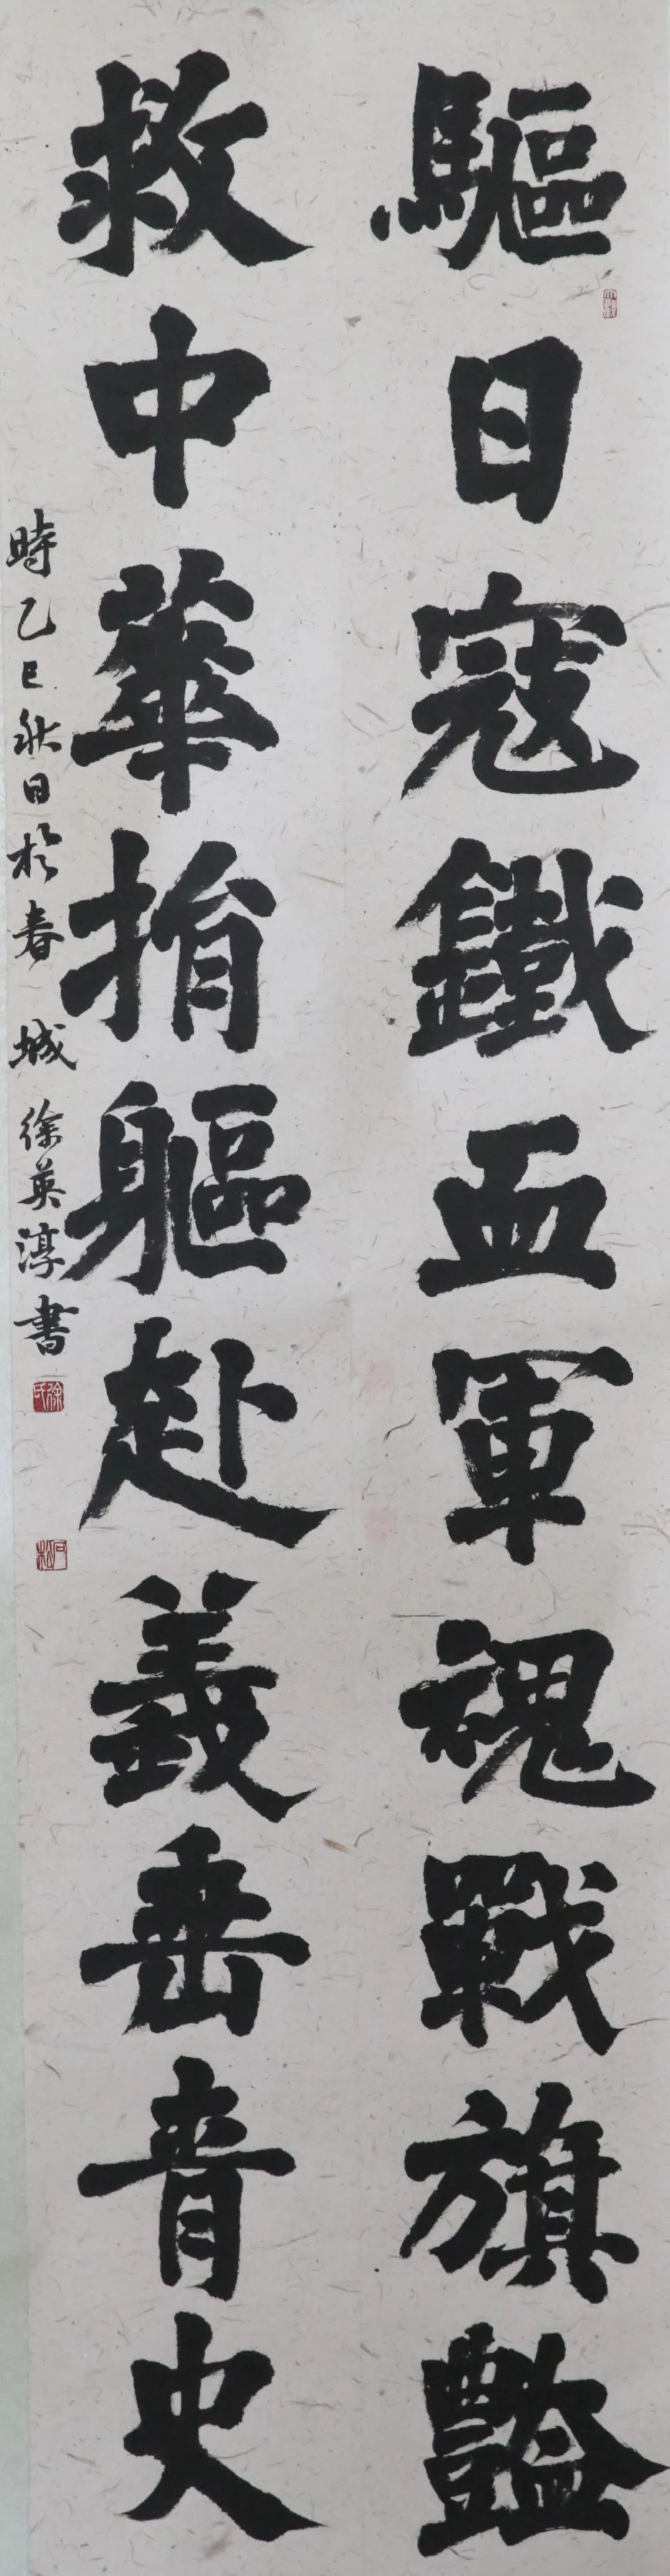 驅日寇鐵血軍魂戰旗豔
救中華捐軀赴義垂青史
時乙巳秋日於春城徐英淳書
徐氏